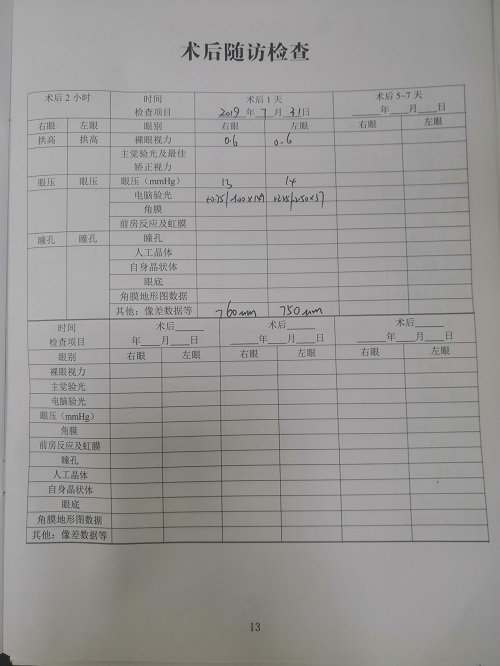 术后随访检查
术后 2 小时 时间 术后 1 天 术后 5~7 天
检查项目 2019 年 7 月 31 日 ____年____月____日
右眼 左眼 眼别 右眼 左眼 右眼 左眼
拱高 拱高 裸眼视力 0.6 0.6
主觉验光及最佳
矫正视力
眼压 眼压 眼压（mmHg） 13 14
电脑验光
角膜
前房反应及虹膜
瞳孔 瞳孔 瞳孔
人工晶体
自身晶状体
眼底
角膜地形图数据
其他：像差数据等 760um 750um
时间 术后____ 术后____ 术后____
检查项目 年____月____日 ____年____月____日 ____年____月____日
眼别 右眼 左眼 右眼 左眼 右眼 左眼
裸眼视力
主觉验光
电脑验光
眼压（mmHg）
角膜
前房反应及虹膜
瞳孔
人工晶体
自身晶状体
眼底
角膜地形图数据
其他：像差数据等
13